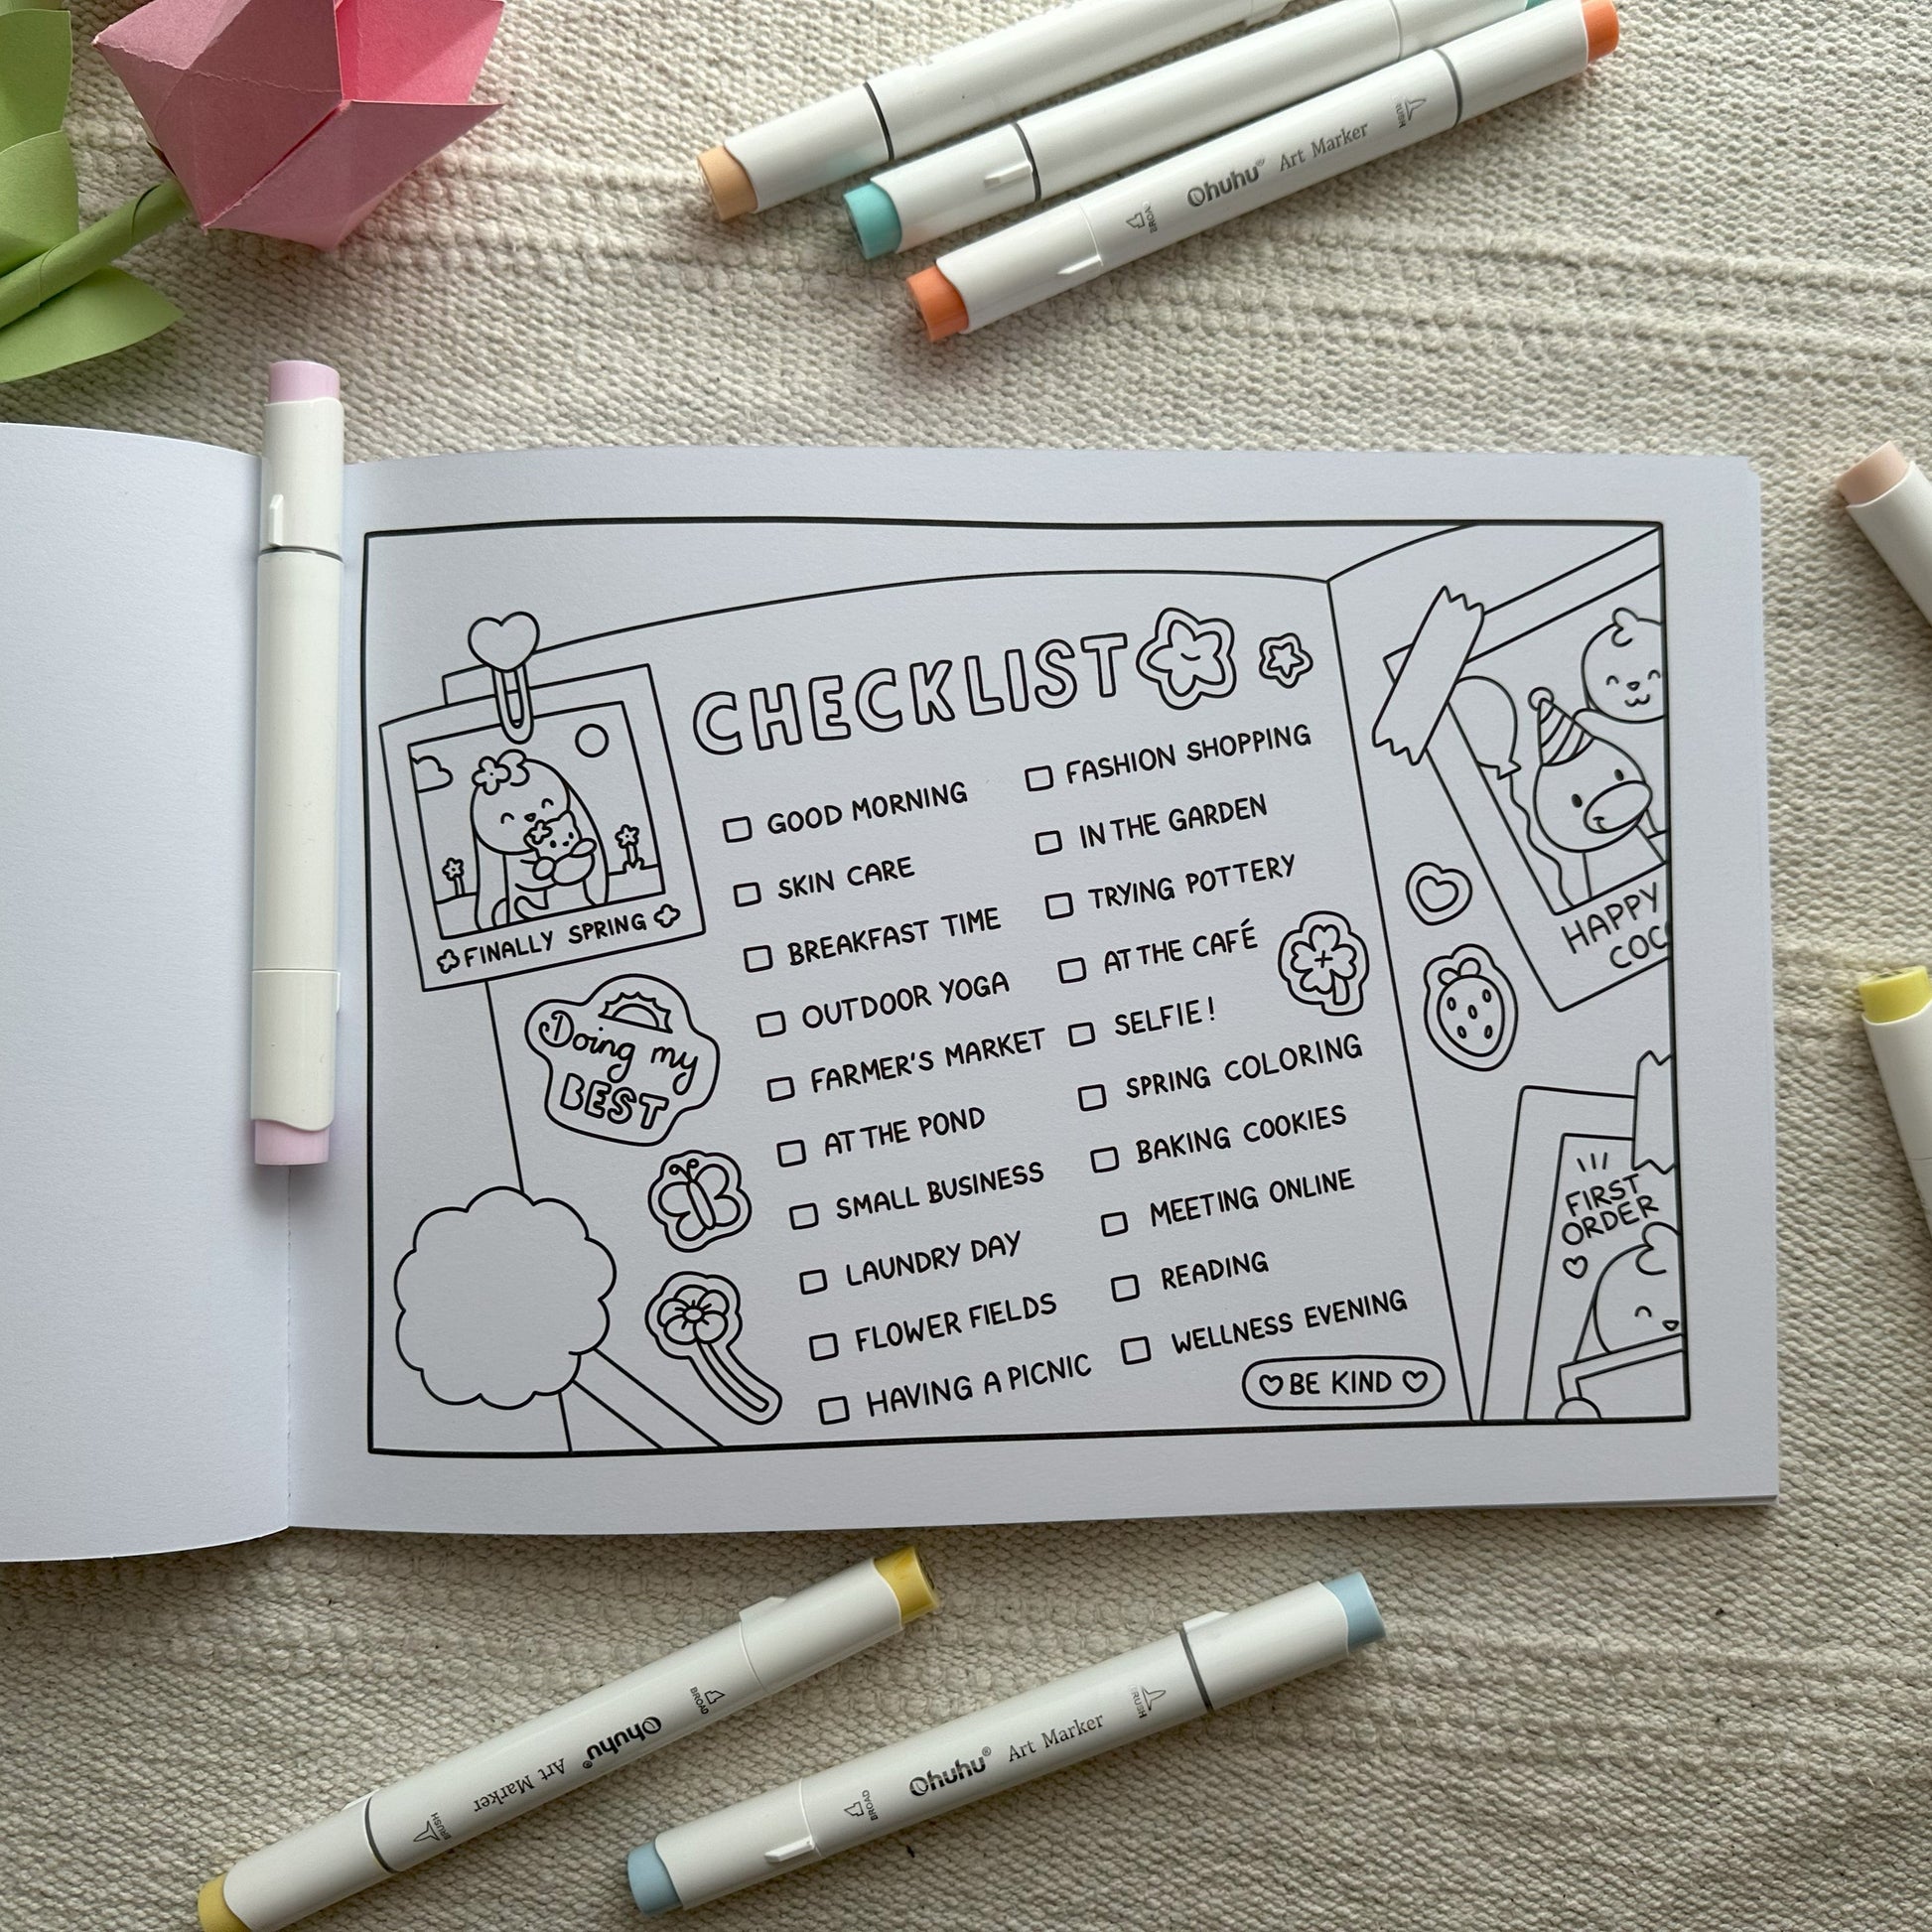 Ohuhu® Art Marker
BROAD
BRUSH
CHECKLIST
GOOD MORNING
SKIN CARE
BREAKFAST TIME
OUTDOOR YOGA
FARMER'S MARKET
AT THE POND
SMALL BUSINESS
LAUNDRY DAY
FLOWER FIELDS
HAVING A PICNIC
FASHION SHOPPING
IN THE GARDEN
TRYING POTTERY
AT THE CAFÉ
SELFIE!
SPRING COLORING
BAKING COOKIES
MEETING ONLINE
READING
WELLNESS EVENING
BE KIND
FINALLY SPRING
Doing my
BEST
HAPPY
FIRST
ORDER
BROAD
Ohuhu®
Art Marker
BRUSH
BROAD
Ohuhu® Art Marker
BRUSH